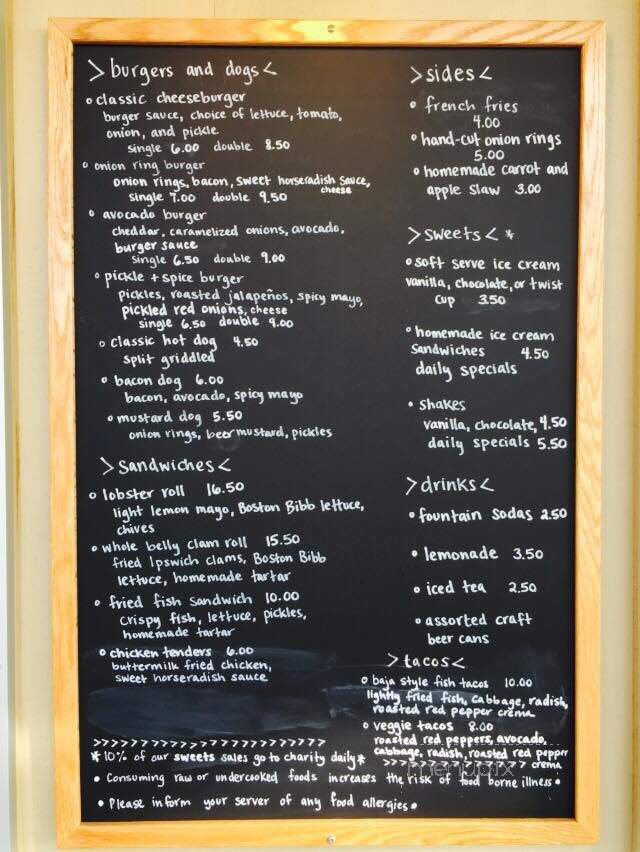 >burgers and dogs<
o classic cheeseburger
burger sauce, choice of lettuce, tomato,
onion, and pickle
single 6.00 double 8.50
o onion ring burger
onion rings, bacon, sweet horseradish sauce,
cheese
single 7.00 double 9.50
o avocado burger
cheddar, caramelized onions, avocado,
burger sauce
single 6.50 double 9.00
o pickle + spice burger
pickles, roasted jalapeños, spicy mayo,
pickled red onions, cheese
single 6.50 double 9.00
o classic hot dog 4.50
split griddled
o bacon dog 6.00
bacon, avocado, spicy mayo
o mustard dog 5.50
onion rings, beer mustard, pickles
>sandwiches<
o lobster roll 16.50
light lemon mayo, Boston Bibb lettuce,
chives
o whole belly clam roll 15.50
fried Ipswich clams, Boston Bibb
lettuce, homemade tartar
o fried fish sandwich 10.00
crispy fish, lettuce, pickles,
homemade tartar
o chicken tenders 6.00
buttermilk fried chicken,
sweet horseradish sauce
>sides<
o french fries
4.00
o hand-cut onion rings
5.00
o homemade carrot and
apple slaw 3.00
>sweets<*
o soft serve ice cream
vanilla, chocolate, or twist
cup 3.50
o homemade ice cream
sandwiches 4.50
daily specials
• shakes
vanilla, chocolate, 4.50
daily specials 5.50
>drinks<
o fountain sodas 2.50
o lemonade 3.50
o iced tea 2.50
o assorted craft
beer cans
>tacos<
o baja style fish tacos 10.00
lightly fried fish, cabbage, radish,
roasted red pepper crema
o veggie tacos 8.00
roasted red peppers, avocado,
cabbage, radish, roasted red pepper
crema
>>>>>>>>>>>>>>>>>>>>>>
* 10% of our sweets sales go to charity daily*
>>>>>>>>>>>>>>>
menupix
• Consuming raw or undercooked foods increases the risk of food borne illness •
• Please inform your server of any food allergies •